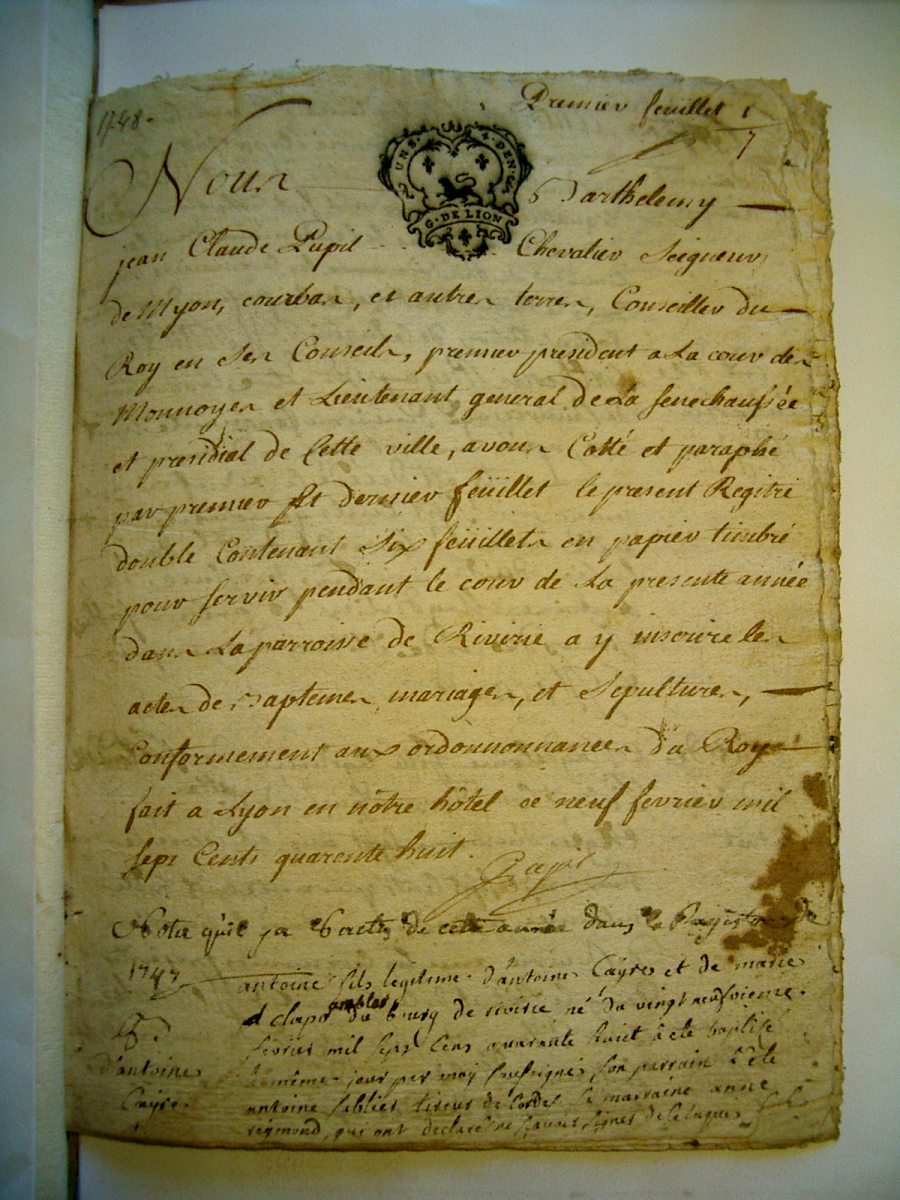 1748.
Premier feuillet 1
7
2. UNS. 4. DEN.
G. DE LION
Nous Barthelemy
jean Claude Pupil Chevalier Seigneur
de Myon, courban, et autres terres, Conseiller du
Roy en ses Conseils, premier president a La cour des
Monnoyes et Lieutenant general de La senechaussée
et presidial de Cette ville, avons Cotté et paraphé
par premier et dernier feüillet le present Regitre
double Contenant Six feüillets en papier timbré
pour servir pendant le cour de La presente année
dans La parroisse de Riverie a y inscrire les
actes de Baptemes, mariages, et Sepultures,
Conformement aux ordonnonnances du Roy
fait a Lyon en nôtre hôtel ce neuf fevrier mil
sept Cents quarente huit.
Pupil
Nota qu'il y a actes de cette année dans le Registre de
1747
antoine fils legitime d'antoine Cayre et de marie
du bourg de riverie né du vingt neufvieme
fevrier mil sept cens quarante huit a été baptisé
le même jour par moy soussigné, son parrain a été
antoine tireur de cordes la marraine anne
reymond, qui ont declaré ne sçavoir signer de ce enquis
B.
d'antoine
Cayre